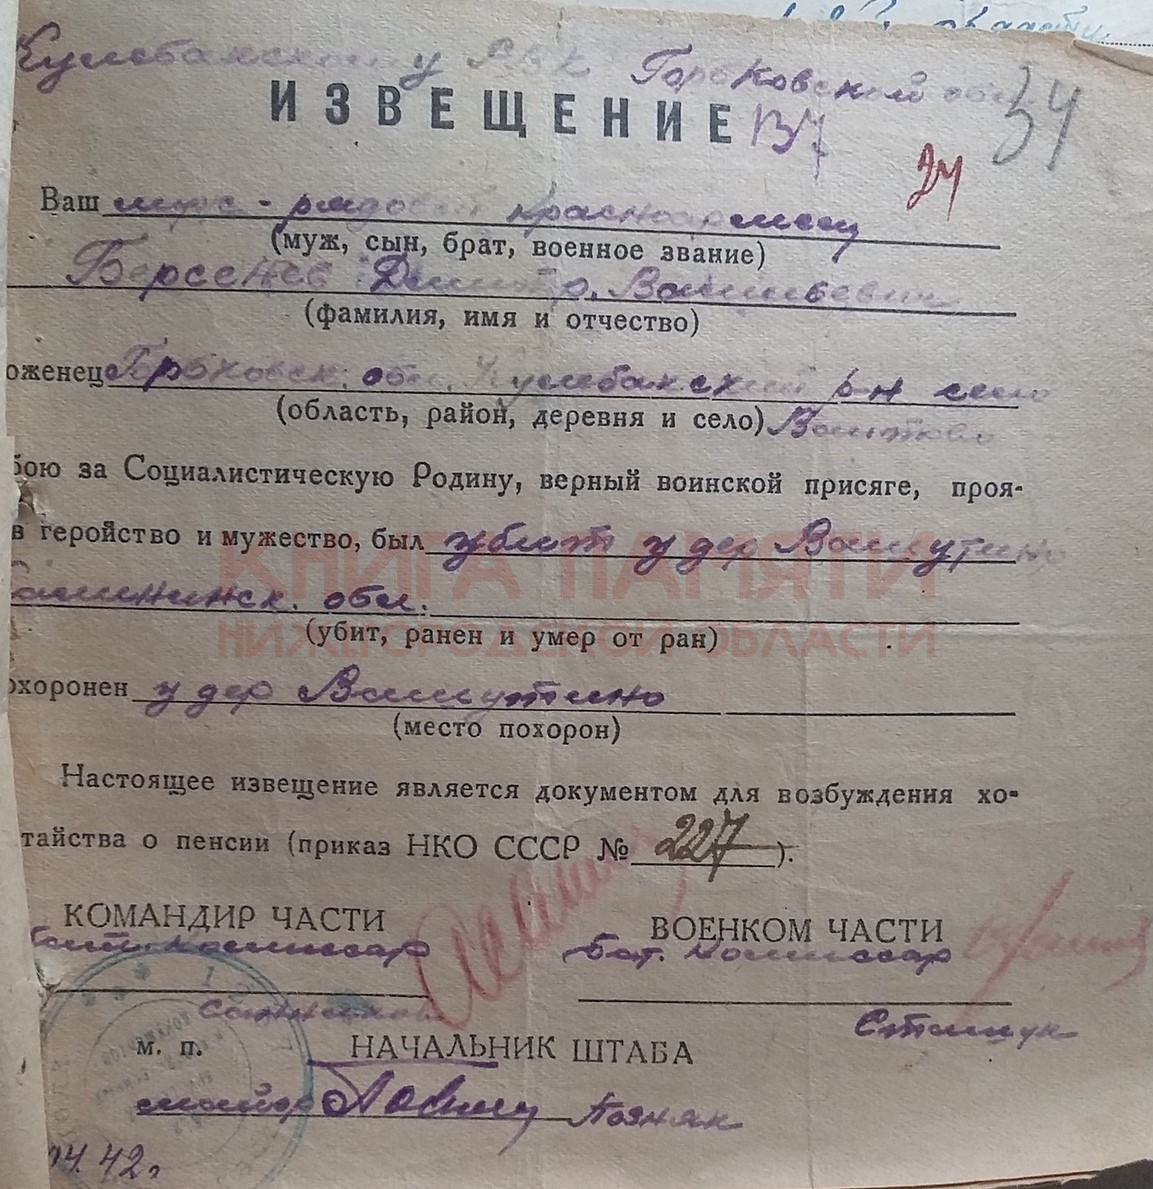 Кулебакскому РВК Горьковской обл.
ИЗВЕЩЕНИЕ
34
24
Ваш муж - рядовой красноармеец
(муж, сын, брат, военное звание)
Берсенев Дмитр. Васильевич
(фамилия, имя и отчество)
оженец Горьковск. обл. Кулебакский р-н село
(область, район, деревня и село)
бою за Социалистическую Родину, верный воинской присяге, проя-
в геройство и мужество, был убит у дер Вашутино
Калининск. обл.
(убит, ранен и умер от ран)
КНИГА ПАМЯТИ
НИЖЕГОРОДСКОЙ ОБЛАСТИ
охоронен у дер Вашутино
(место похорон)
Настоящее извещение является документом для возбуждения хо-
тайства о пенсии (приказ НКО СССР № 227).
КОМАНДИР ЧАСТИ ВОЕНКОМ ЧАСТИ
комиссар Бат. Комиссар
М. П. НАЧАЛЬНИК ШТАБА
майор Позняк
04.42г